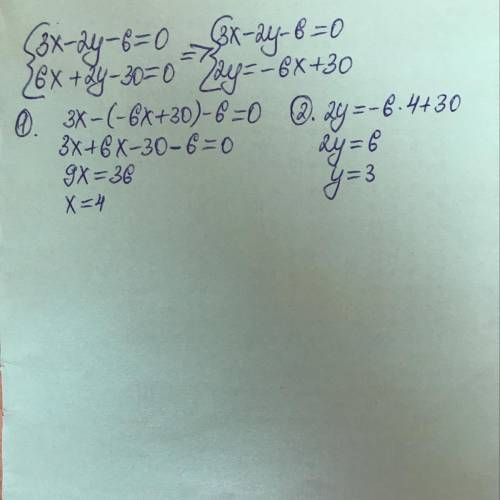 {3x-2y-6=0 => {3x-2y-6=0
{6x+2y-30=0 {2y=-6x+30
①. 3x-(-6x+30)-6=0
3x+6x-30-6=0
9x=36
x=4
②. 2y=-6·4+30
2y=6
y=3